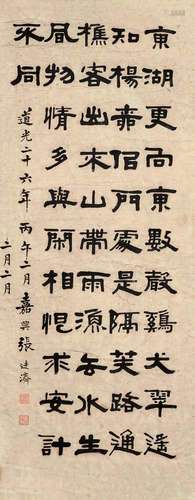 東湖更向東數聲鷄犬翠遥
知楊門處是隔芙路通
樵客出來山帶雨去水生
風物情多與閑相恨求安計
不同
道光二十六年丙午二月嘉興張廷濟
二月二月